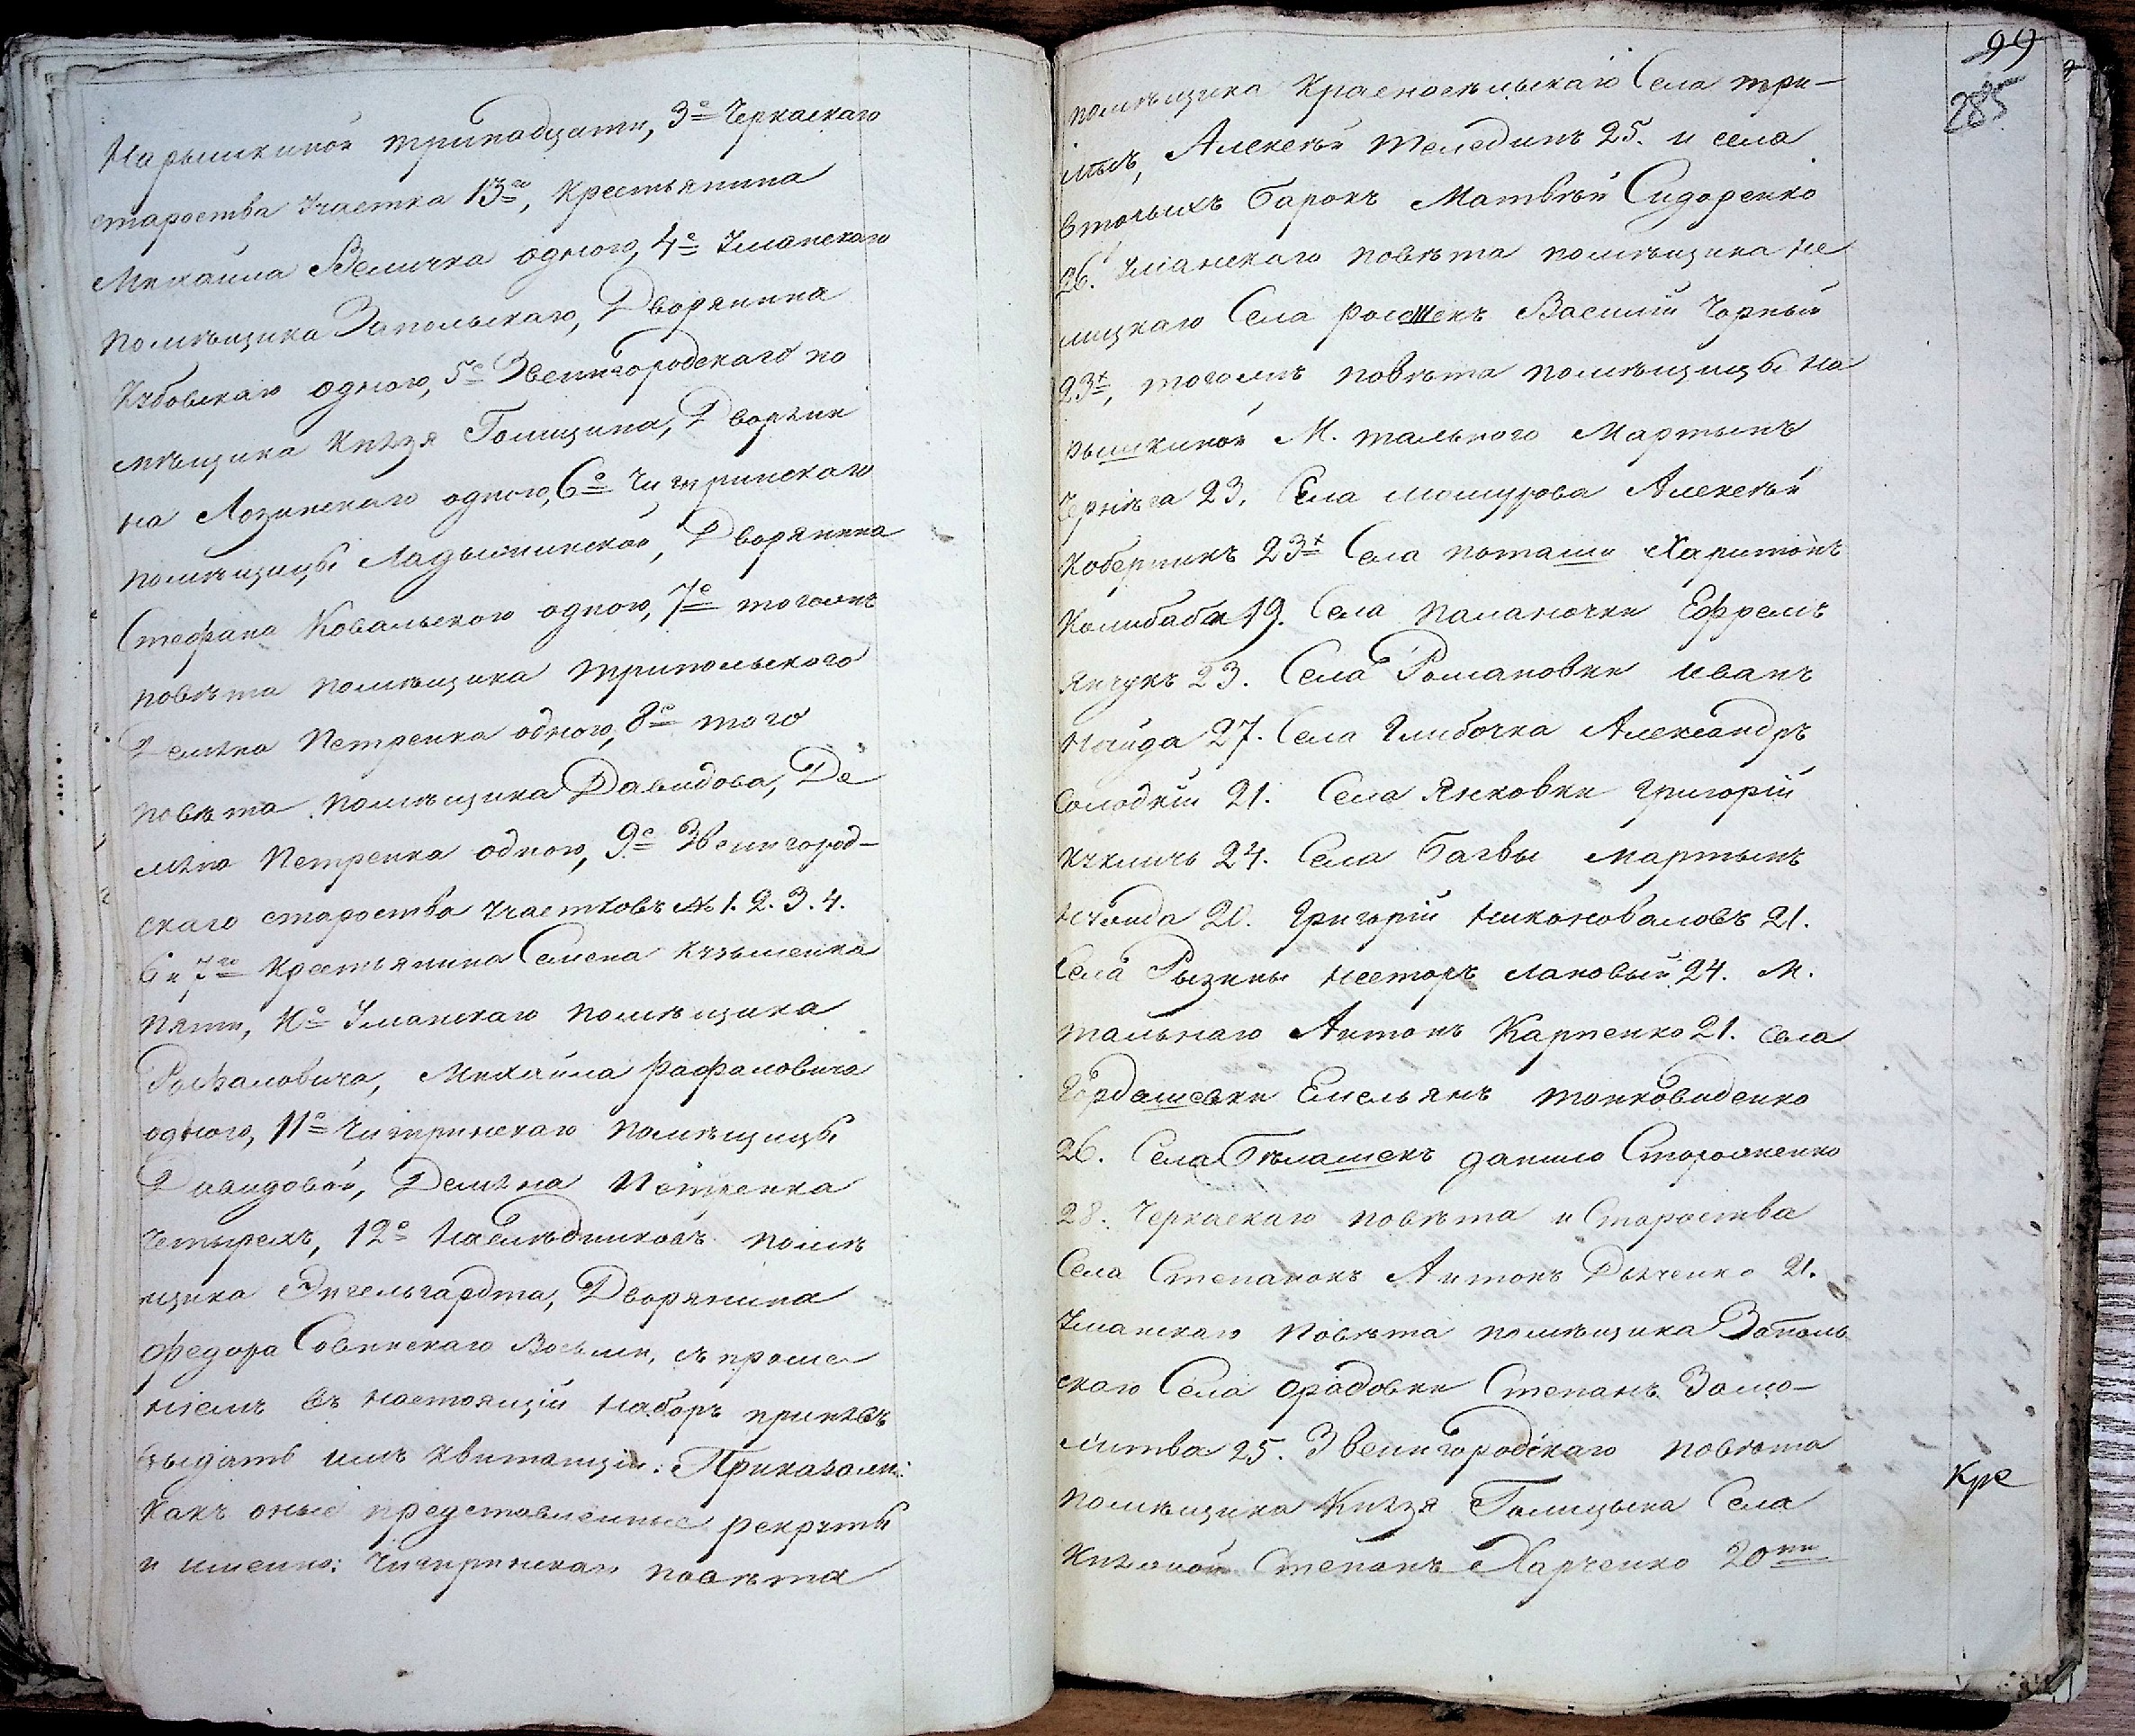 Нарышкиной тринадцати, 3е Черкаскаго
староства участка 13го, Крестьянина
Михайла Величка одного, 4е Уманскаго
помѣщика Запольскаго, Дворянина
одного, 5е Звенигородскаго по
мѣщика Князя Голицина, Дворяни
на Лозинскаго одного, 6е Чигиринскаго
помѣщицы Ладыжинской, Дворянина
Стефана Ковальского одного, 7е тогожъ
повѣта помѣщика Трипольского
Демяна Петренка одного, 8е того
повѣта помѣщика Давидова, Де
мяна Петренка одного, 9е Звенигород-
скаго староства участковъ № 1. 2. 3. 4.
6 и 7го Крестьянина Семена Кузьменка
пяти, 10е Уманскаго помѣщика
Рафаловича, Михайла Рафаловича
одного, 11е Чигиринскаго помѣщицы
Давидовой, Демяна Петренка
четырехъ, 12е Наслѣдниковъ помѣ
щика Энгельгардта, Дворянина
Федора Совинскаго восьми, съ проше
ніемъ въ настоящій наборъ принявъ
выдать имъ квитанціи: Приказали:
Какъ оные представленные рекруты
и именно: Чигиринскаго повѣта
99
285
помѣщика Красносельскаго Села три-
лѣсъ, Алексѣй Телединъ 25. и села
Втолыхъ Барокъ Матвѣй Сидоренко
26. Уманскаго повѣта помѣщика Не
лицкаго Села Василій Чорный
23х, тогожъ повѣта помѣщицы На
рышкиной М. Тального Мартынъ
Чернѣга 23. Села мошурова Алексѣй
Коберникъ 23х Села поташи Харитонъ
Колибаба 19. Села паланочки Ефремъ
Янчукъ 23. Села Романовки Иванъ
Найда 27. Села Глибочка Александръ
Солодкій 21. Села Янковки Григорій
24. Села Багвы Мартынъ
20. Григорій Никоноваловъ 21.
Села Рызины Несторъ Лановый 24. М.
Тальнаго Антонъ Карпенко 21. Села
Гордашевки Емельянъ Тонковиденко
26. Села Бѣлашекъ Данило Стороженко
28. Черкаскаго повѣта и Староства
Села Степанокъ Антонъ Дяченко 21.
Уманскаго повѣта помѣщика Заполь
скаго Села Орадовки Степанъ Замо-
литва 25. Звенигородскаго повѣта
помѣщика Князя Голицына Села
Княжой Степанъ Харченко 20ти
Кре